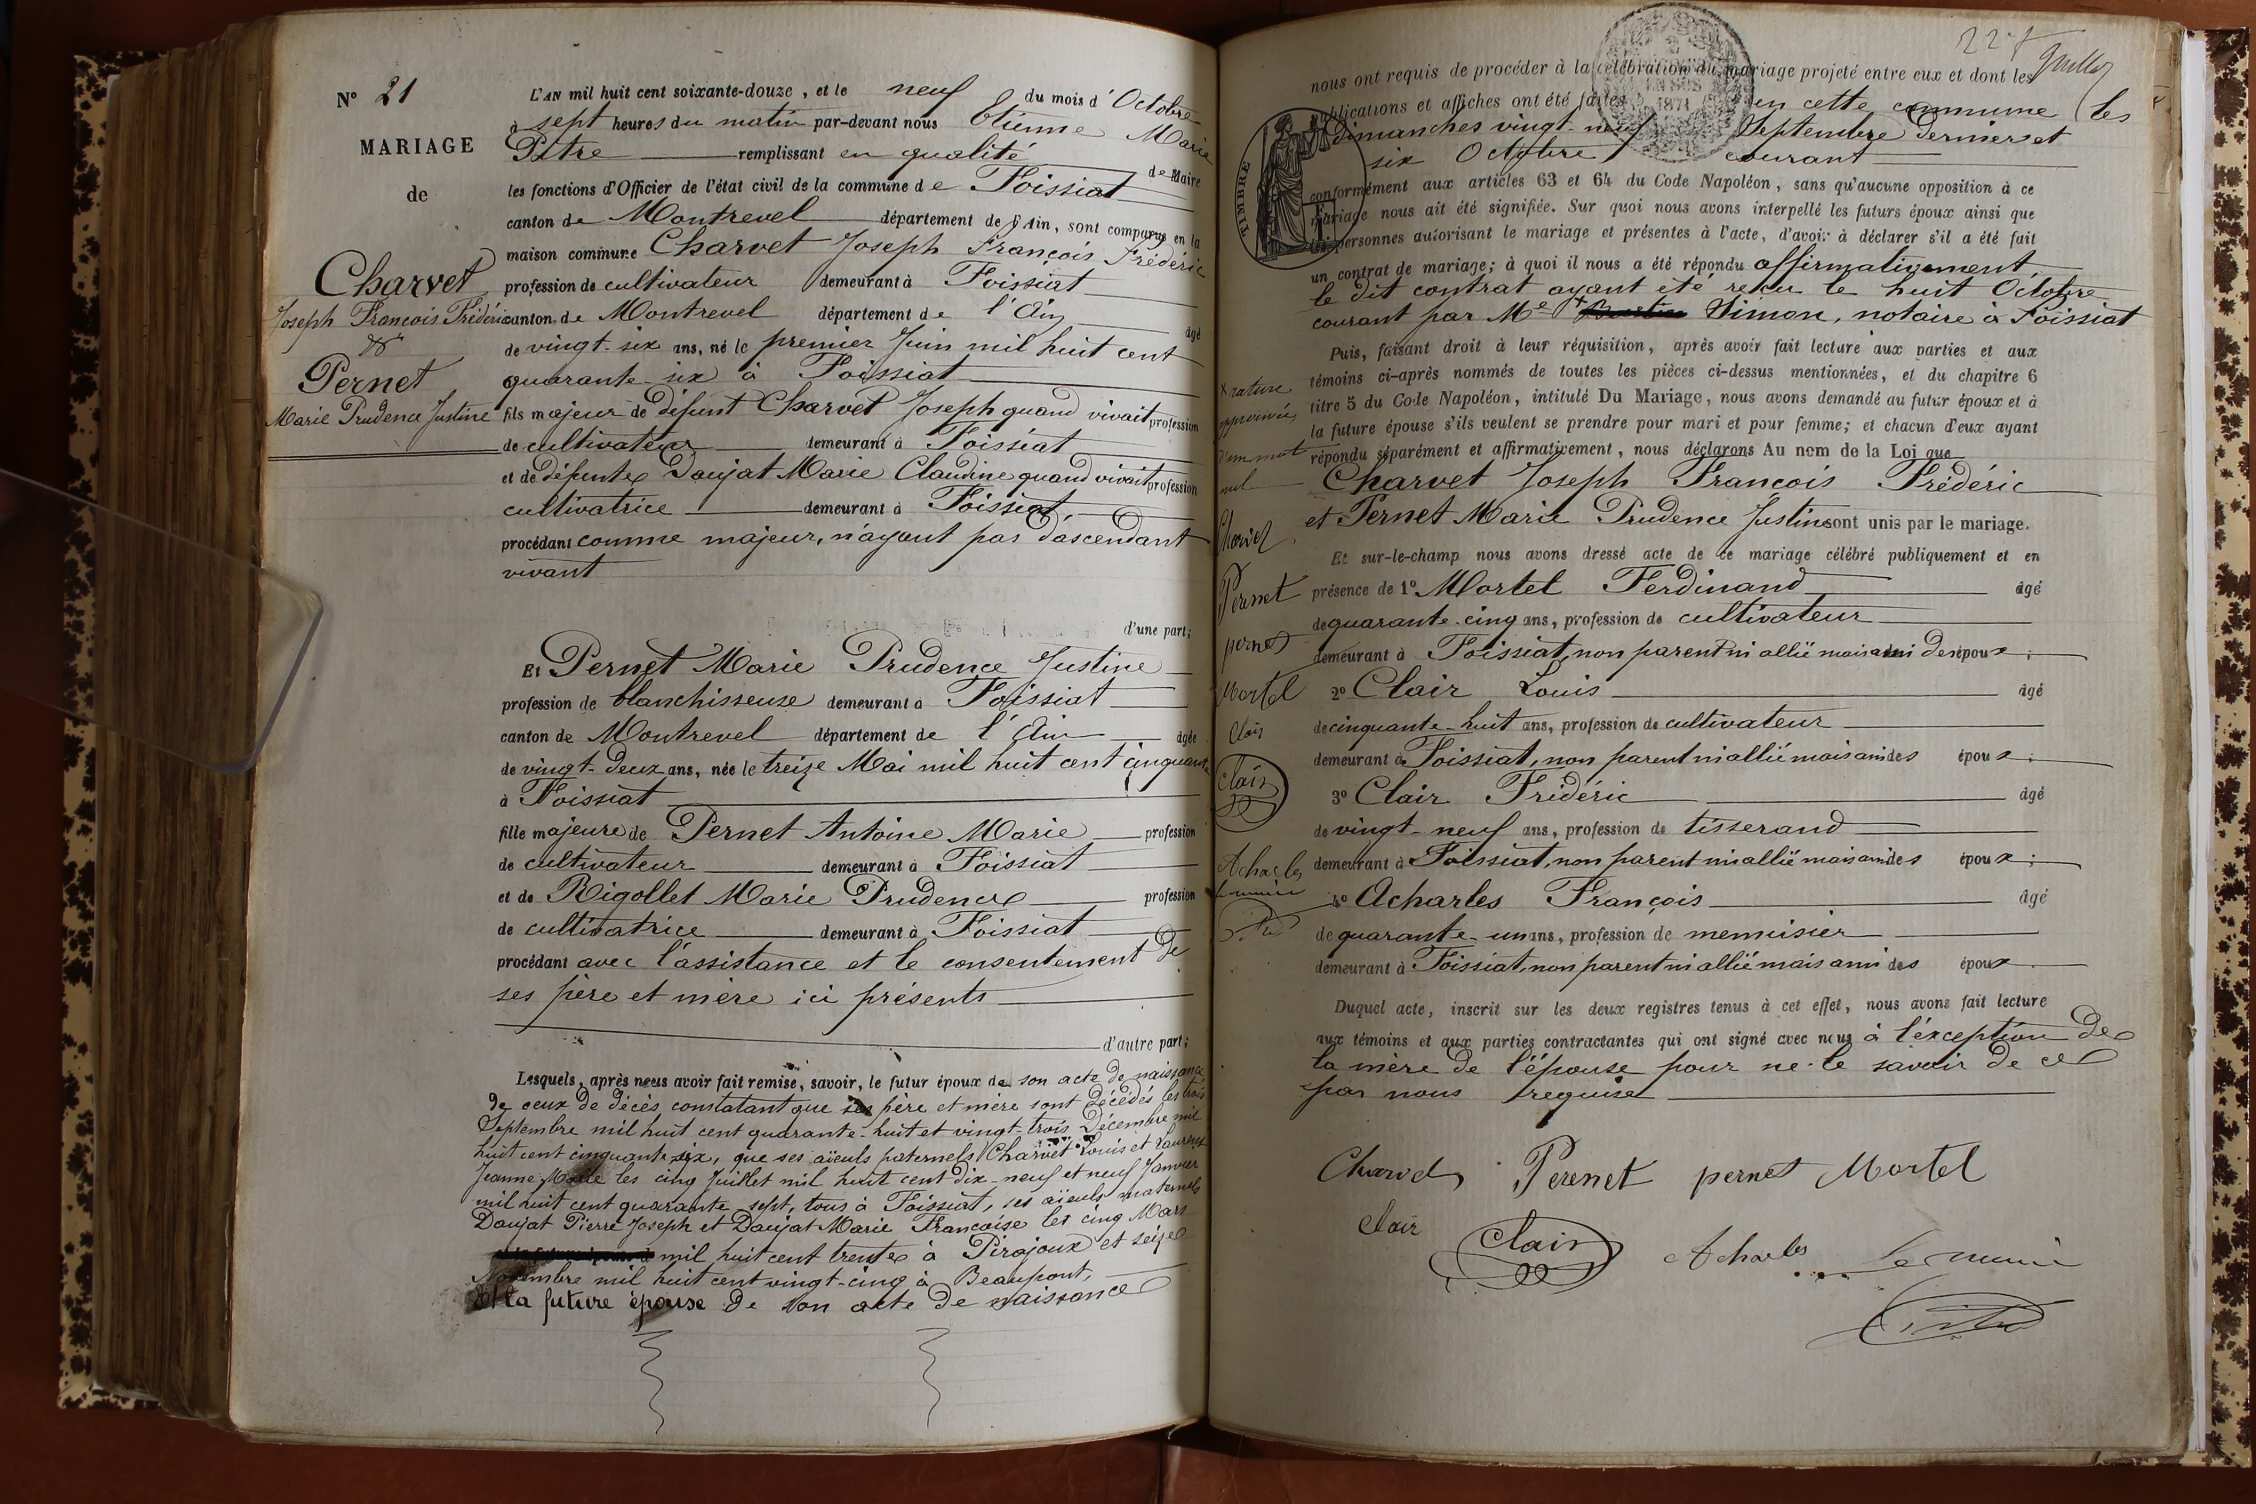 N° 21
MARIAGE
de
Charvet
Joseph François Frédéric
&
Pernet
Marie Prudence Justine
L'AN mil huit cent soixante-douze, et le neuf du mois d'Octobre
à sept heures du matin par-devant nous Etienne Marie
Pitre remplissant en qualité de Maire
les fonctions d'Officier de l'état civil de la commune de Foissiat
canton de Montrevel département de l'Ain, sont comparus en la
maison commune Charvet Joseph François Frédéric
profession de cultivateur demeurant à Foissiat
canton de Montrevel département de l'Ain âgé
de vingt-six ans, né le premier Juin mil huit cent
quarante-six à Foissiat
fils majeur de défunt Charvet Joseph quand vivait profession
de cultivateur demeurant à Foissiat
et de défunte Daujat Marie Claudine quand vivait profession
cultivatrice demeurant à Foissiat
procédant comme majeur, n'ayant pas d'ascendant
vivant
d'une part;
Et Pernet Marie Prudence Justine
profession de blanchisseuse demeurant à Foissiat
canton de Montrevel département de l'Ain âgée
de vingt-deux ans, née le treize Mai mil huit cent cinquante
à Foissiat
fille majeure de Pernet Antoine Marie profession
de cultivateur demeurant à Foissiat
et de Rigollet Marie Prudence profession
de cultivatrice demeurant à Foissiat
procédant avec l'assistance et le consentement de
ses père et mère ici présents
d'autre part;
Lesquels, après nous avoir fait remise, savoir, le futur époux de son acte de naissance
de ceux de décès constatant que ses père et mère sont décédés les trois
Septembre mil huit cent quarante-huit et vingt-trois Décembre mil
huit cent cinquante six, que ses aïeuls paternels Charvet Louis et Laurent
Jeanne Marie les cinq Juillet mil huit cent dix-neuf et neuf Janvier
mil huit cent quarante sept, tous à Foissiat, ses aïeuls maternels
Daujat Pierre Joseph et Daujat Marie Françoise les cinq Mars
mil huit cent trente à Pirajoux et seize
Novembre mil huit cent vingt-cinq à Beaupont,
Et la future épouse de son acte de naissance
227
nous ont requis de procéder à la célébration du mariage projeté entre eux et dont les
publications et affiches ont été faites en cette commune les
dimanches vingt-neuf Septembre dernier et
six Octobre courant
TIMBRE
1871
conformément aux articles 63 et 64 du Code Napoléon, sans qu'aucune opposition à ce
mariage nous ait été signifiée. Sur quoi nous avons interpellé les futurs époux ainsi que
les personnes autorisant le mariage et présentes à l'acte, d'avoir à déclarer s'il a été fait
un contrat de mariage; à quoi il nous a été répondu affirmativement
le dit contrat ayant été reçu le huit Octobre
courant par Me + Simon, notaire à Foissiat
Puis, faisant droit à leur réquisition, après avoir fait lecture aux parties et aux
témoins ci-après nommés de toutes les pièces ci-dessus mentionnées, et du chapitre 6
titre 5 du Code Napoléon, intitulé Du Mariage, nous avons demandé au futur époux et à
la future épouse s'ils veulent se prendre pour mari et pour femme; et chacun d'eux ayant
répondu séparément et affirmativement, nous déclarons Au nom de la Loi que
Charvet Joseph François Frédéric
et Pernet Marie Prudence Justine sont unis par le mariage.
Et sur-le-champ nous avons dressé acte de ce mariage célébré publiquement et en
présence de 1° Mortel Ferdinand âgé
de quarante-cinq ans, profession de cultivateur
demeurant à Foissiat, non parent ni allié mais ami des époux;
2° Clair Louis âgé
de cinquante-huit ans, profession de cultivateur
demeurant à Foissiat, non parent ni allié mais ami des époux;
3° Clair Frédéric âgé
de vingt-neuf ans, profession de tisserand
demeurant à Foissiat, non parent ni allié mais ami des époux;
4° Acharles François âgé
de quarante-un ans, profession de menuisier
demeurant à Foissiat, non parent ni allié mais ami des époux
Duquel acte, inscrit sur les deux registres tenus à cet effet, nous avons fait lecture
aux témoins et aux parties contractantes qui ont signé avec nous à l'exception de
la mère de l'épouse pour ne le savoir de ce
par nous requise
x rature
approuvée
d'un mot
nul
Charvet
Perenet
pernet
Mortel
Clair
Clair
Acharles
Le maire
Pitre
Charvet Perenet pernet Mortel
Clair Clair Acharles Le maire
Pitre